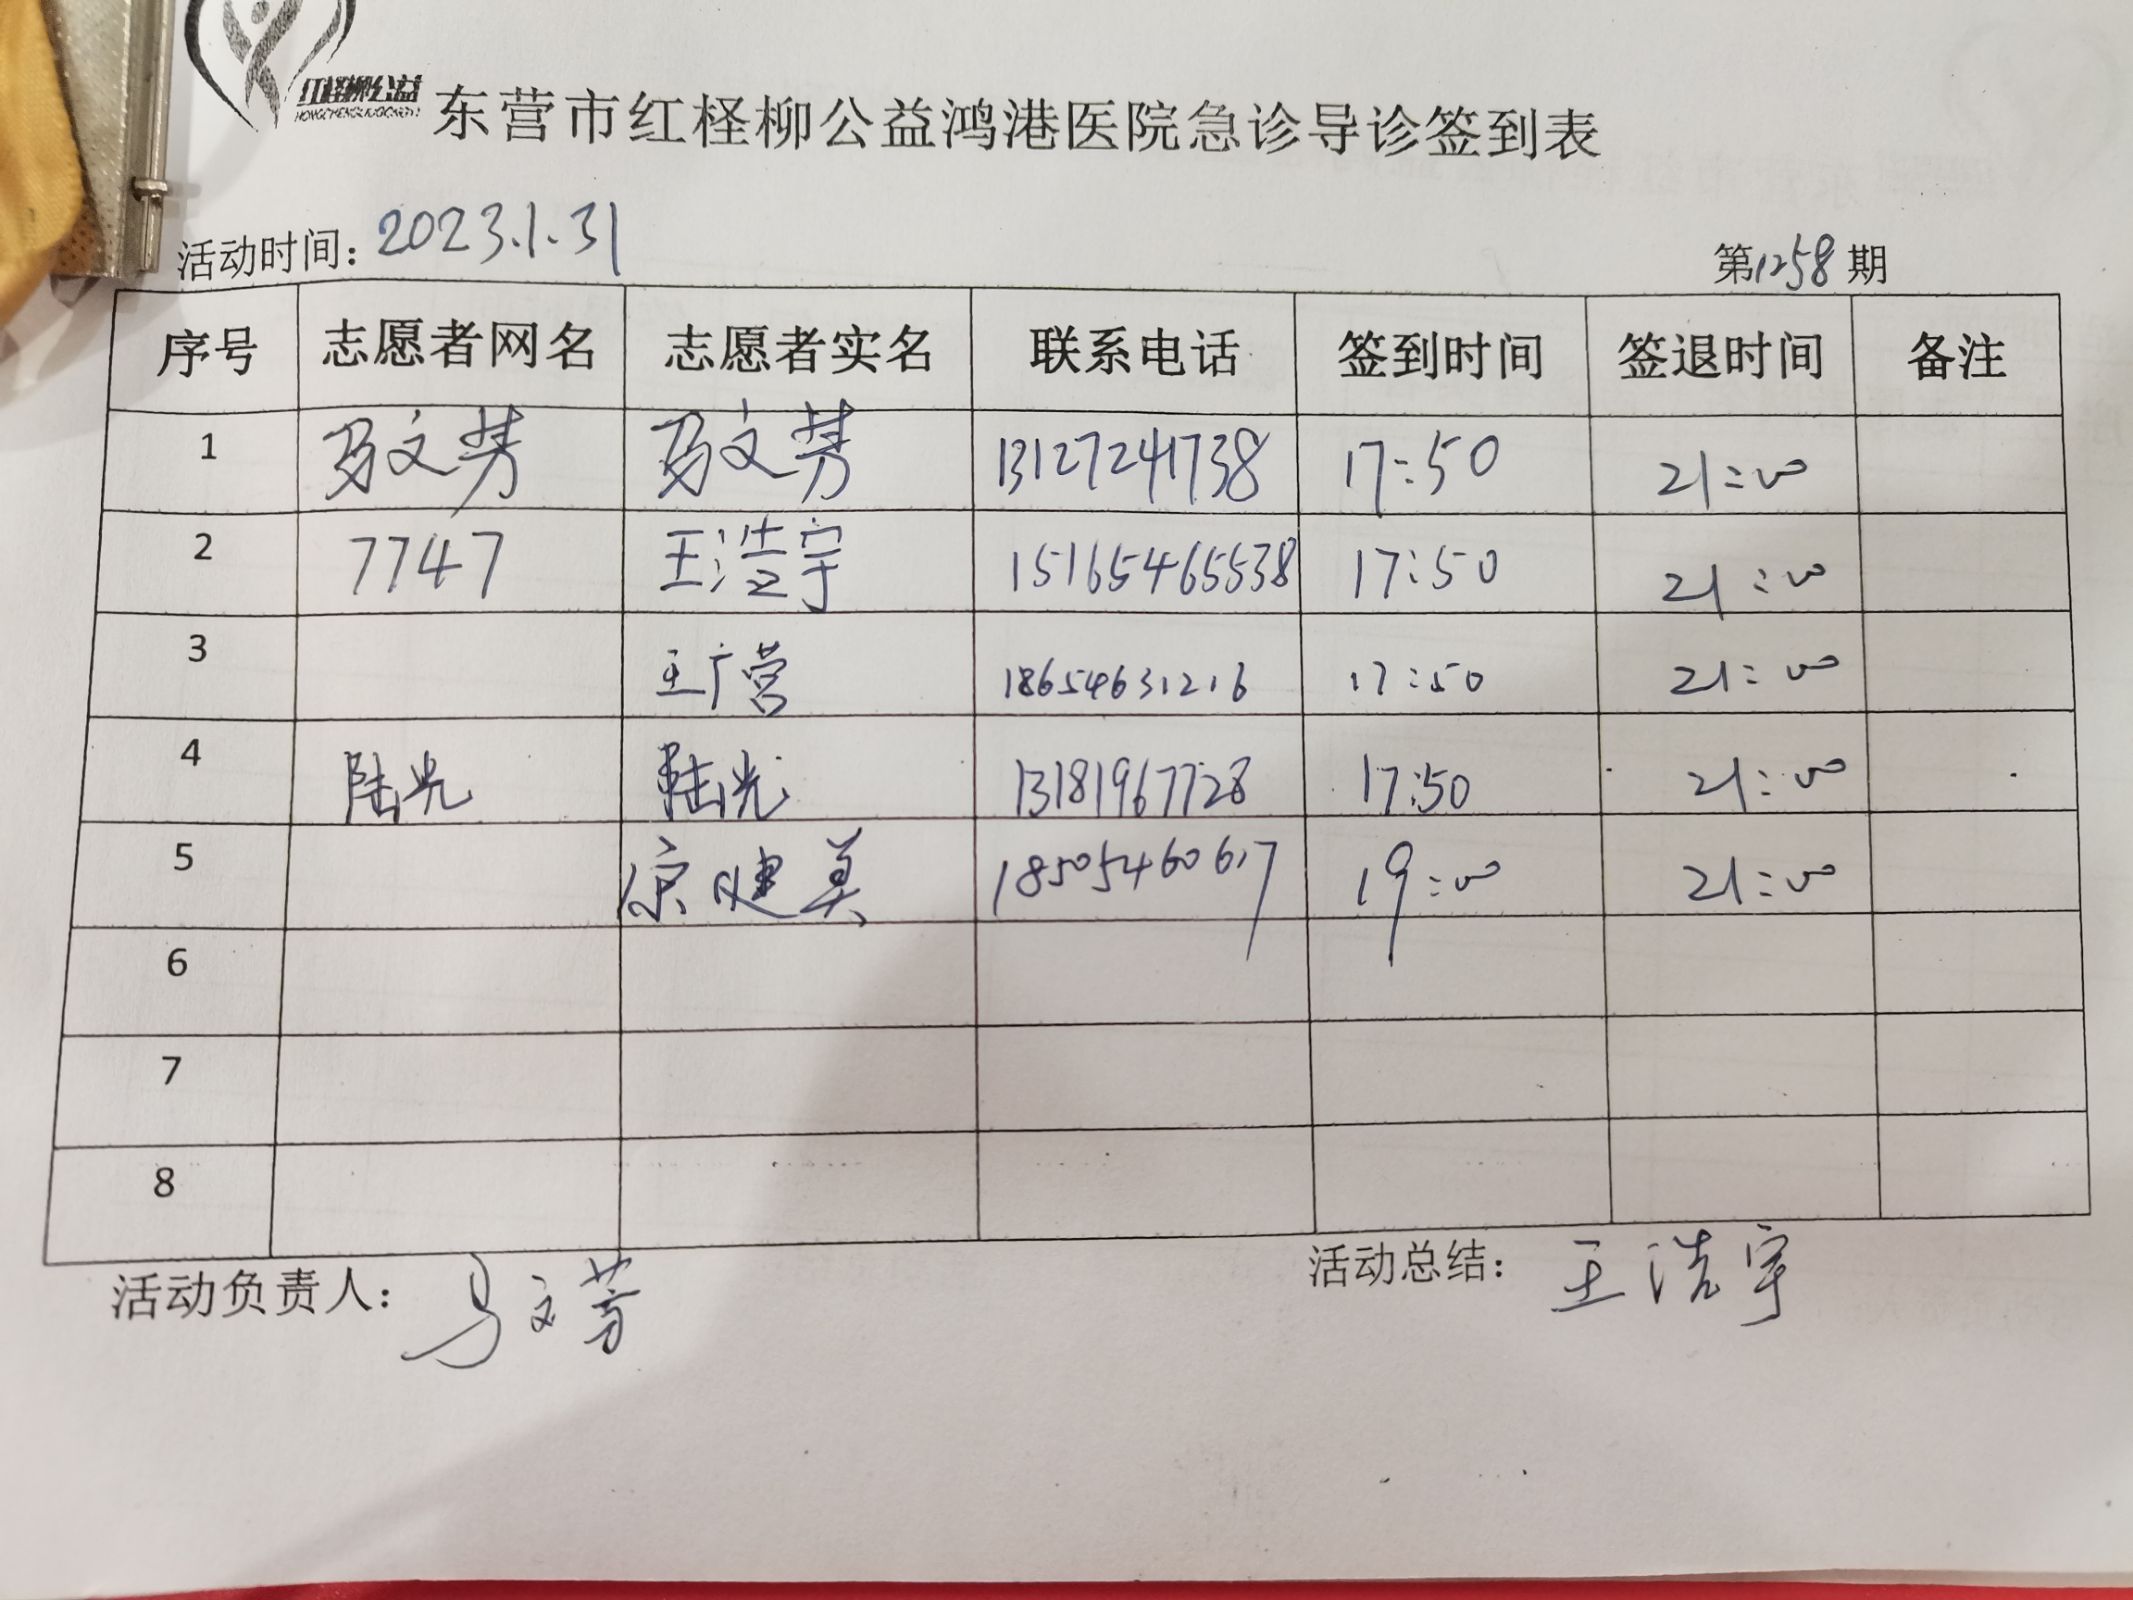 红柽柳公益
东营市红柽柳公益鸿港医院急诊导诊签到表
活动时间：2023.1.31 第1258期
序号 志愿者网名 志愿者实名 联系电话 签到时间 签退时间 备注
1 马文芳 马文芳 13127241738 17:50 21:00
2 7747 王浩宇 15165465538 17:50 21:00
3 王广营 18654631216 17:50 21:00
4 陆光 陆光 13181967728 17:50 21:00
5 健美 18505460617 19:00 21:00
6
7
8
活动负责人：马文芳 活动总结：王浩宇